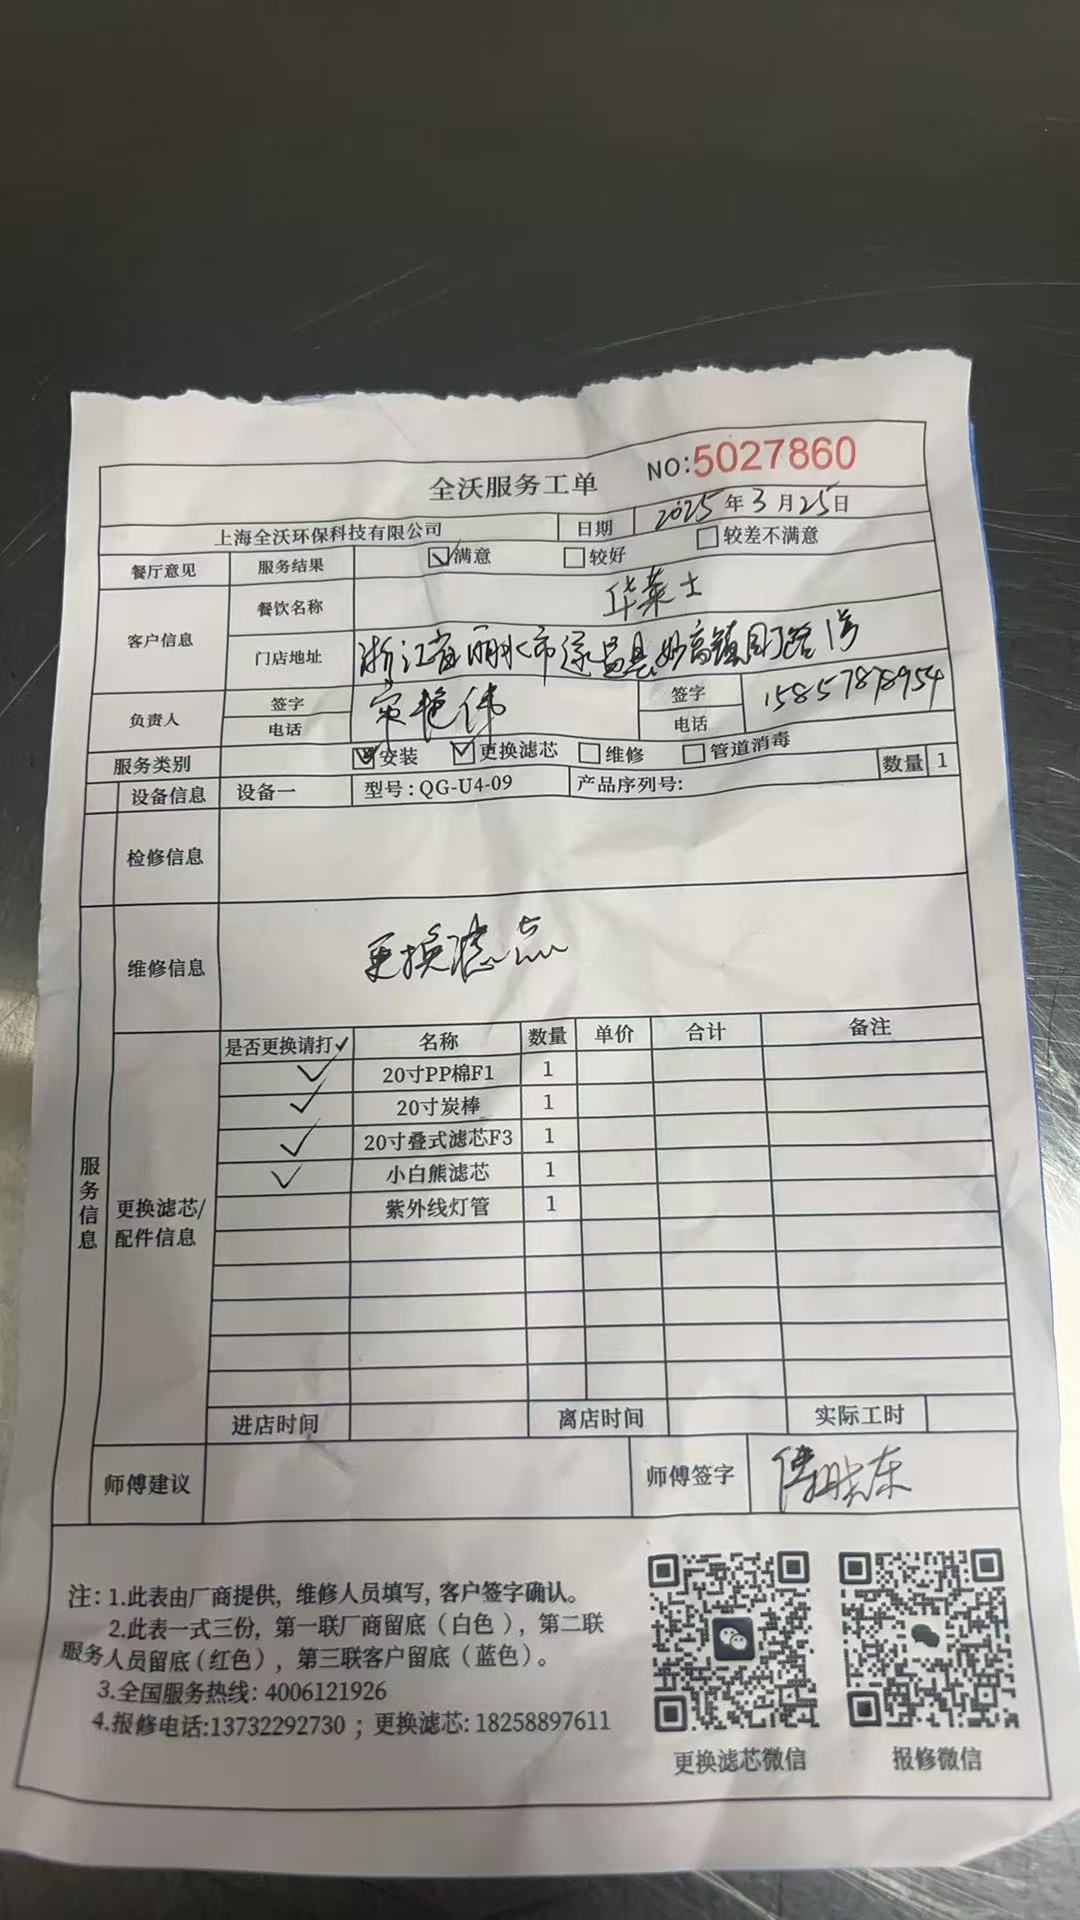 全沃服务工单 NO:5027860
上海全沃环保科技有限公司 日期 2025年3月25日
餐厅意见 服务结果 满意 较好 较差不满意
客户信息 餐饮名称 华莱士
门店地址 浙江省丽水市遂昌县妙高镇 路1号
负责人 签字 艳伟 签字
电话 电话 15857878954
服务类别 安装 更换滤芯 维修 管道消毒
设备信息 设备一 型号:QG-U4-09 产品序列号: 数量 1
检修信息
维修信息 更换滤芯
服务信息
更换滤芯/配件信息
是否更换请打✓ 名称 数量 单价 合计 备注
✓ 20寸PP棉F1 1
✓ 20寸炭棒 1
✓ 20寸叠式滤芯F3 1
✓ 小白熊滤芯 1
紫外线灯管 1
进店时间 离店时间 实际工时
师傅建议 师傅签字 傅 东
注: 1.此表由厂商提供, 维修人员填写, 客户签字确认。
2.此表一式三份, 第一联厂商留底(白色), 第二联
服务人员留底(红色), 第三联客户留底(蓝色)。
3.全国服务热线: 4006121926
4.报修电话:13732292730 ; 更换滤芯: 18258897611
更换滤芯微信 报修微信